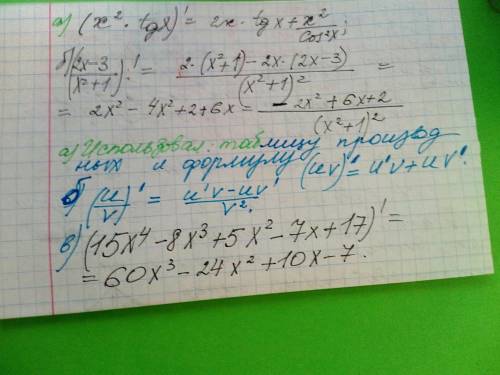 а) (x² · tgx)' = 2x · tgx + x²/cos²x ;
б) ((2x-3)/(x²+1))' = (2·(x²+1) - 2x·(2x-3))/(x²+1)² =
= 2x² - 4x² + 2 + 6x = (-2x² + 6x + 2)/(x²+1)²
а) Использовал таблицу производ
ных и формулу (uv)' = u'v + uv'.
б) (u/v)' = (u'v - uv')/v².
в) (15x⁴ - 8x³ + 5x² - 7x + 17)' =
= 60x³ - 24x² + 10x - 7.